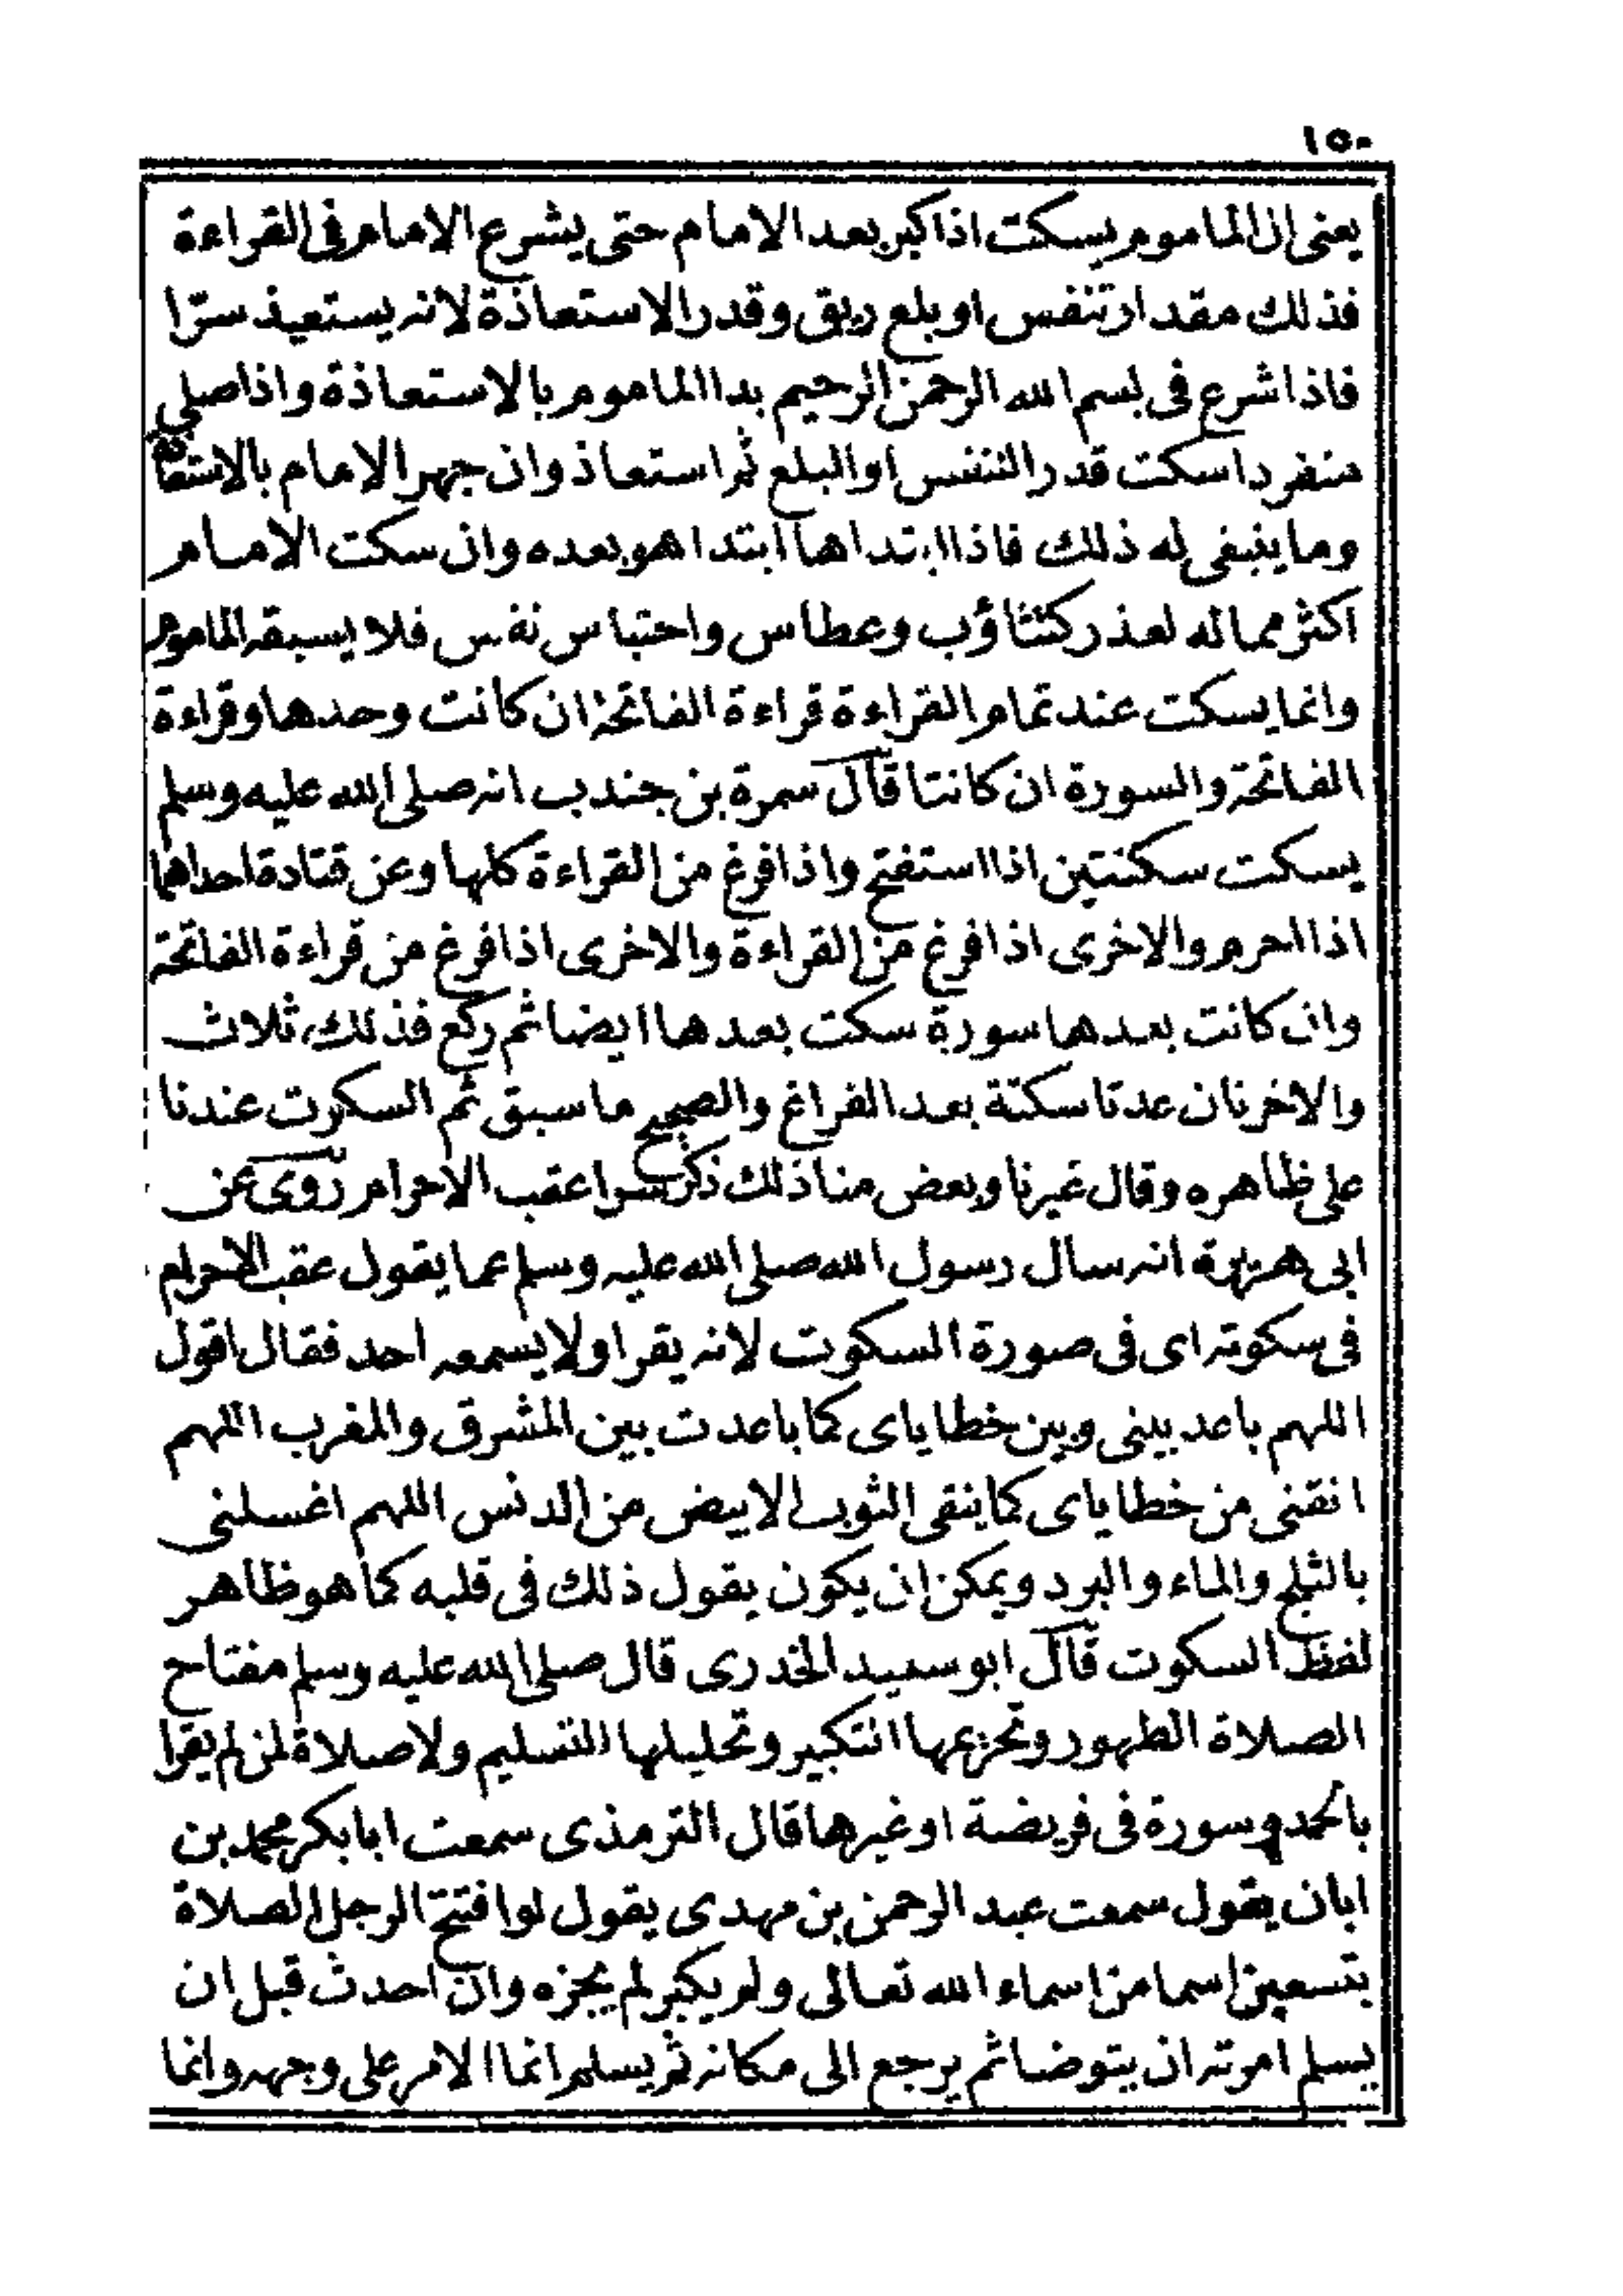 ١٥٠
يعنى ان الماموم يسكت اذا كبر بعد الامام حتى يشرع الامام فى القراءة
فذلك مقدار تنفس او بلع ريق وقدر الاستعاذة لانه يستعيذ سرّا
فاذا شرع فى بسم الله الرحمن الرحيم بدا الماموم بالاستعاذة واذا صلى
منفردا سكت قدر التنفس او البلع ثم استعاذ وان جهر الامام بالاستعاذة
وما ينبغى له ذلك فاذا ابتداها ابتدا هو بعده وان سكت الامام
اكثر مما له لعذر كتثاؤب وعطاس واحتباس نفس فلا يسبقه الماموم
وانما يسكت عند تمام القراءة قراءة الفاتحة ان كانت وحدها وقراءة
الفاتحة والسورة ان كانتا قال سمرة بن جندب انه صلى الله عليه وسلم
يسكت سكتتين اذا استفتح واذا فرغ من القراءة كلها وعن قتادة احداهما
اذا احرم والاخرى اذا فرغ من القراءة والاخرى اذا فرغ من قراءة الفاتحة
وان كانت بعدها سورة سكت بعدها ايضا ثم ركع فذلك ثلاث
والاخرتان عدتا سكتة بعد الفراغ والصحيح ما سبق ثم السكوت عندنا
على ظاهره وقال غيرنا وبعض منا ذلك ذكر سرا عقب الاحرام روى عن
ابى هريرة انه سال رسول الله صلى الله عليه وسلم عما يقول عقب الاحرام
فى سكوته اى فى صورة السكوت لانه يقرا ولا يسمعه احد فقال اقول
اللهم باعد بينى وبين خطاياى كما باعدت بين المشرق والمغرب اللهم
انقنى من خطاياى كما ينقى الثوب الابيض من الدنس اللهم اغسلنى
بالثلج والماء والبرد ويمكن ان يكون يقول ذلك فى قلبه كما هو ظاهر
لفظ السكوت قال ابو سعيد الخدرى قال صلى الله عليه وسلم مفتاح
الصلاة الطهور وتحريمها التكبير وتحليلها التسليم ولا صلاة لمن لم يقرا
بالحمد وسورة فى فريضة او غيرها قال الترمذى سمعت ابا بكر محمد بن
ابان يقول سمعت عبد الرحمن بن مهدى يقول لو افتتح الرجل الصلاة
بتسعين اسما من اسماء الله تعالى ولم يكبر لم يجزه وان احدث قبل ان
يسلم امرته ان يتوضا ثم يرجع الى مكانه ثم يسلم انما الامر على وجهه وانما